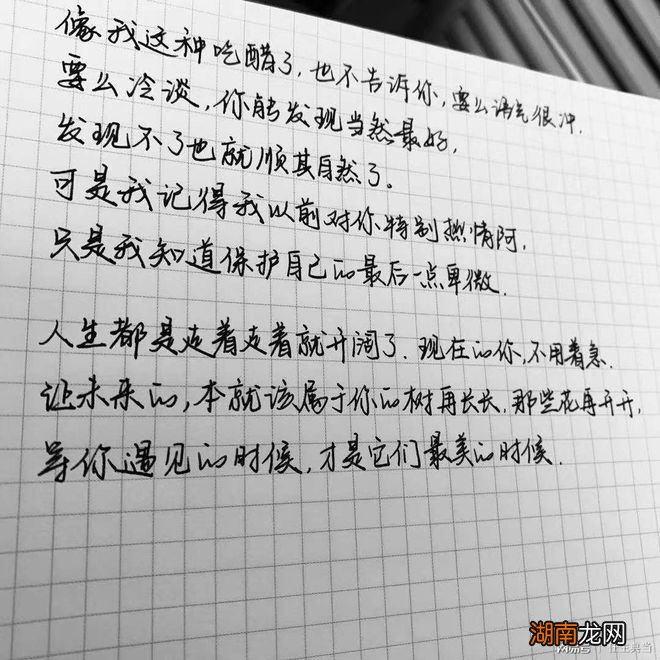 像我这种吃醋了,也不告诉你,要么语气很冲.
要么冷谈,你能发现当然最好,
发现不了也就顺其自然了。
可是我记得我以前对你特别热情阿,
只是我知道保护自己的最后一点卑微.
人生都是走着走着就开阔了.现在的你,不用着急.
让未来的,本就该属于你的树再长长,那些花再开开,
等你遇见的时候,才是它们最美的时候.
湖南龙网